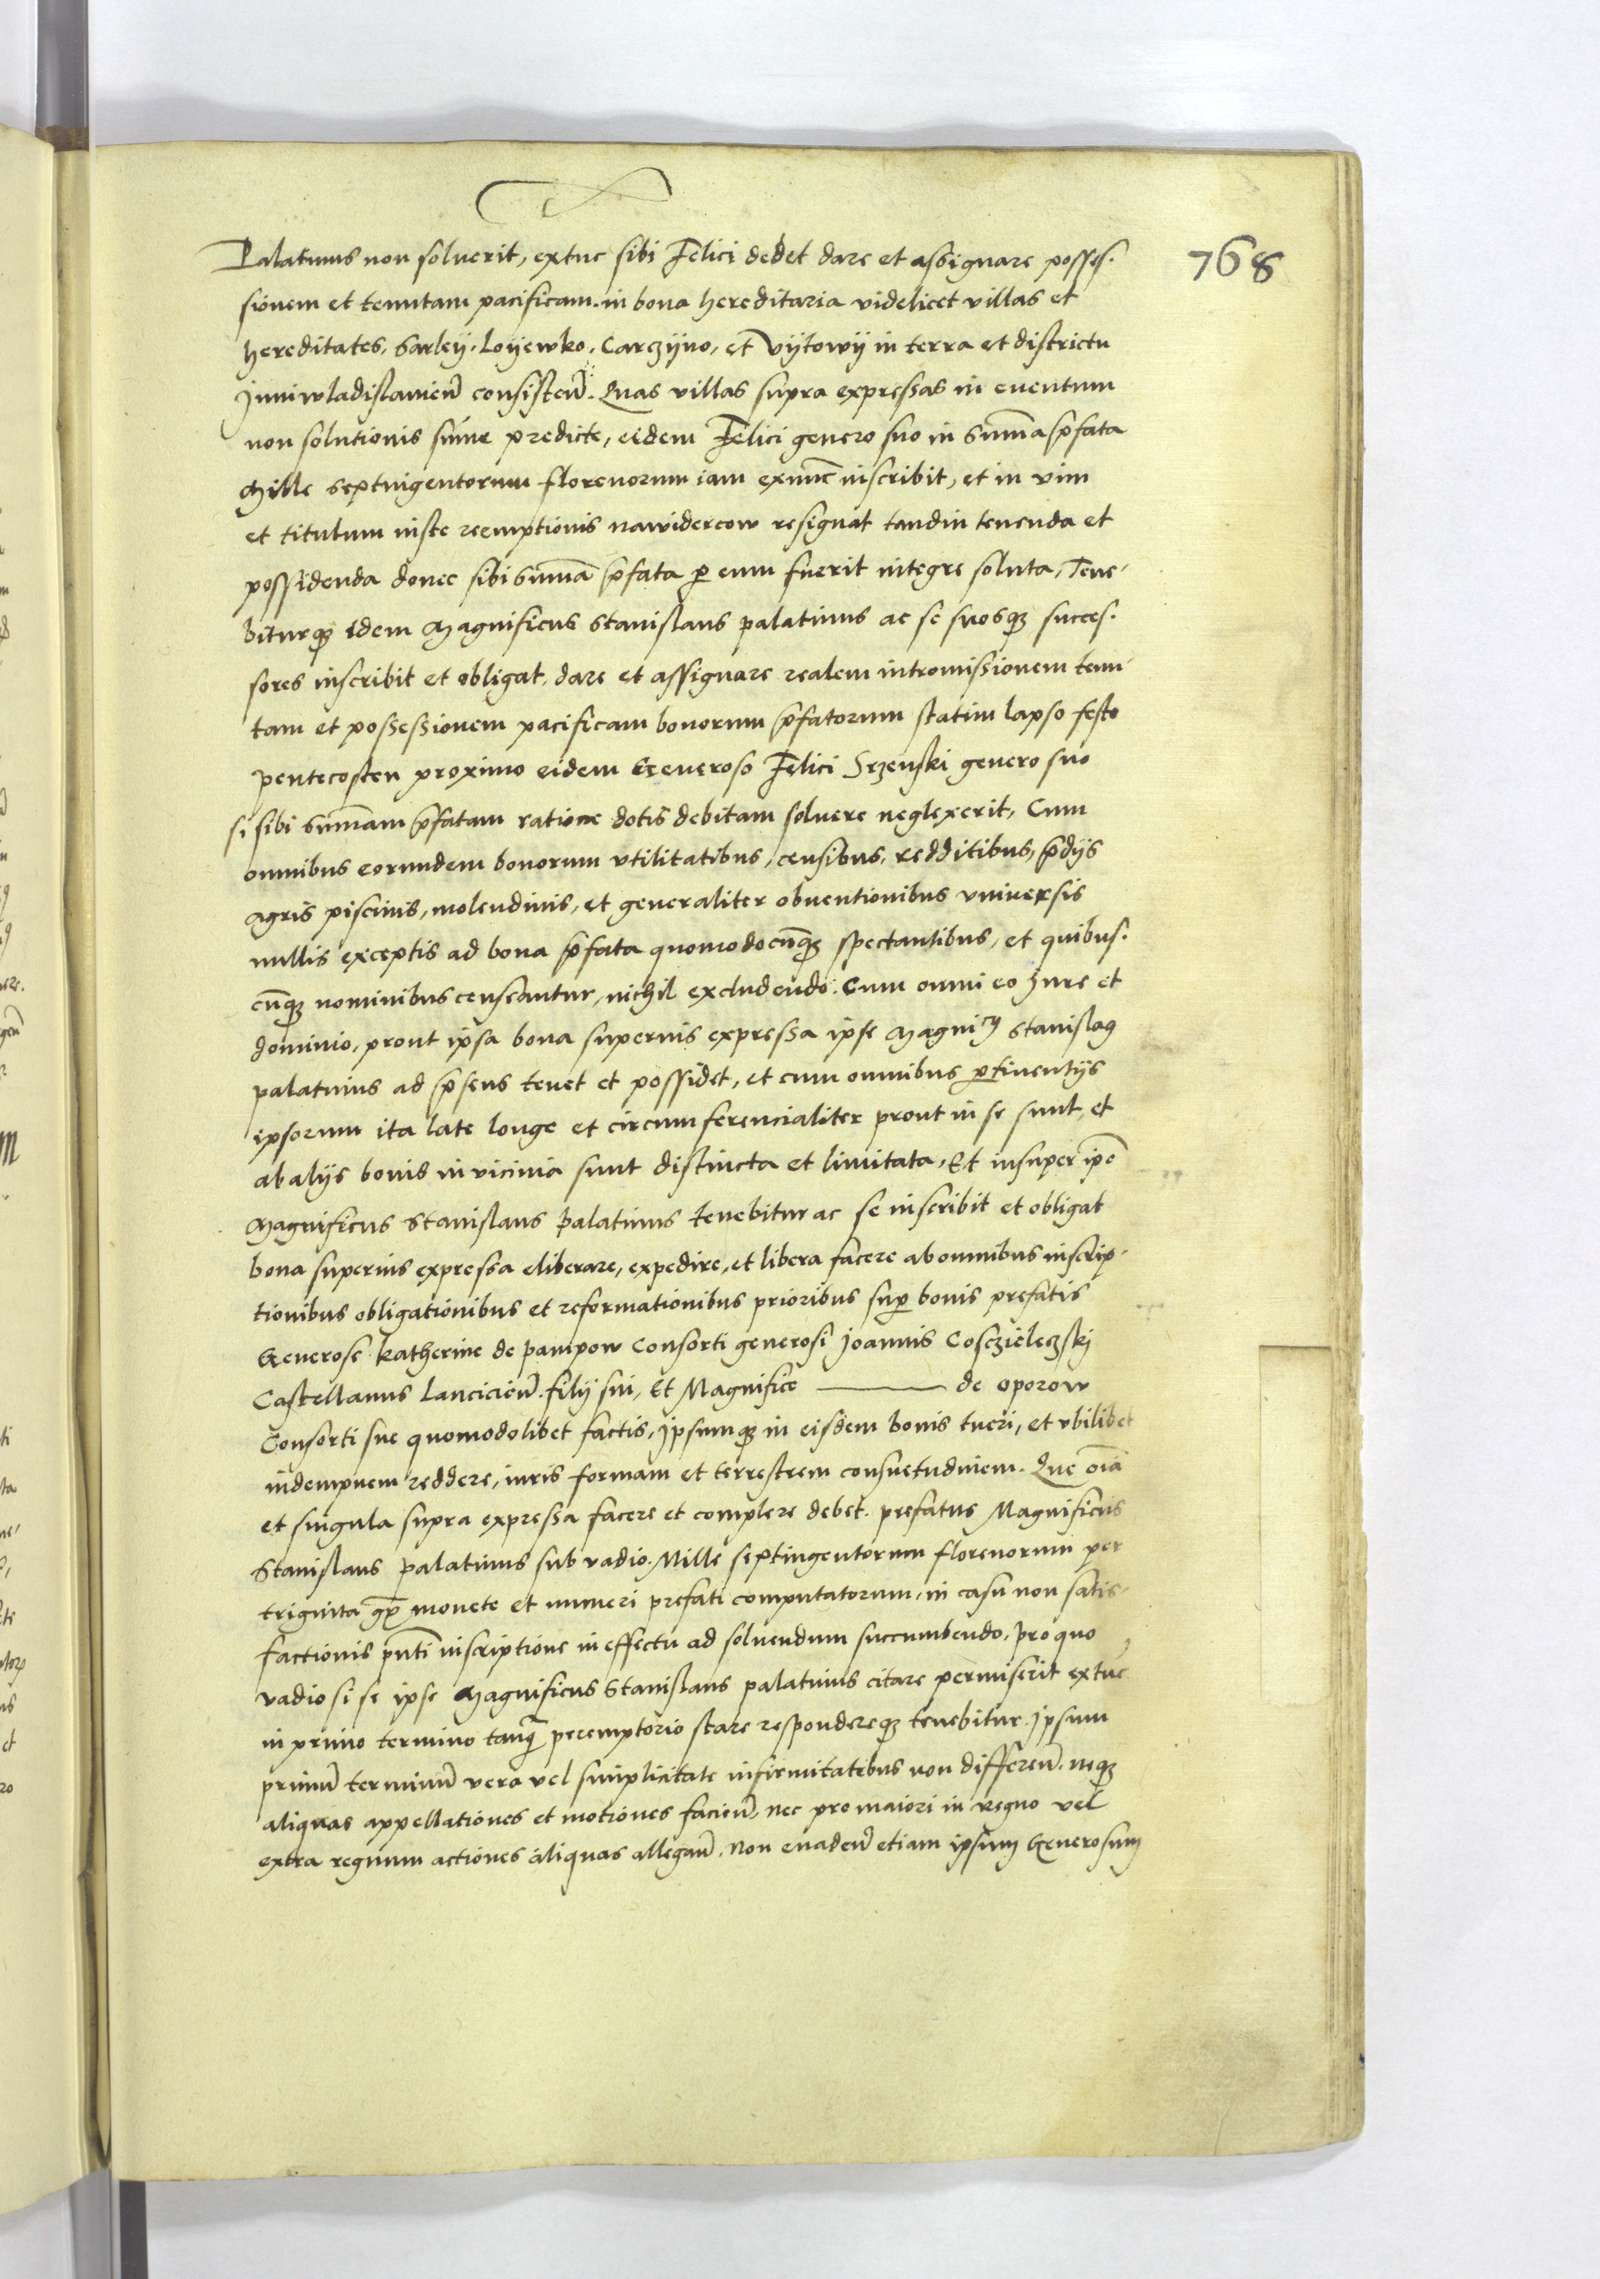 768
Palatinus non soluerit, extuc sibi Felici debet dare et assignare posses-
sionem et tenutam pacificam in bona hereditaria videlicet villas et
hereditates, Sarleÿ, Loÿewko, Carczÿno, et Vÿtowÿ in terra et districtu
Juniwladislauień consisteń. Quas villas supra expressas in euentum
non solutionis summe predicte, eidem Felici genero suo in summa p̄fata
Mille Septuigentorum florenorum iam exnuc̄ inscribit, et in vim
et titulum iuste reemptionis nawidercow resignat tandiu tenenda et
possidenda donec sibi summa p̄fata ꝑ eum fuerit integre soluta, Tene-
biturqꝫ idem Magnificus Stanislaus palatinus ac se suosqꝫ succes-
sores inscribit et obligat, dare et assignare realem intromissionem tenu-
tam et possessionem pacificam bonorum p̄fatorum statim lapso festo
pentecosten proximo eidem Generoso Felici Srzenski genero suo
si sibi summam p̄fatam ratione dotis debitam soluere neglexerit, Cum
omnibus eorundem bonorum vtilitatibus, censibus, redditibus, p̄dijs
agris piscinis, molendinis, et generaliter obuentionibus vniuersis
nullis exceptis ad bona p̄fata quomodocūqꝫ spectantibus, et quibus-
cūqꝫ nominibus censeantur, nichil excludendo: Cum omni eo Jure et
dominio, prout ipsa bona superius expressa ipse Magnicꝰ Stanislaꝰ
palatinus ad p̄sens tenet et possidet, et cum omnibus ꝑtinentijs
ipsorum ita late longe et circumferencialiter prout in se sunt et
ab alijs bonis in vicinia sunt distincta et limitata, Et insuper ip̄e
Magnificus Stanislaus palatinus tenebitur ac se inscribit et obligat
bona superius expressa eliberare, expedire, et libera facere ab omnibus inscrip-
tionibus obligationibus et reformationibus prioribus suꝑ bonis prefatis
Generose Katherine de pampow Consorti generosi Joannis Cosczieleczskj
Castellanus Lancicień. filij sui, Et Magnifice ——— de oporow
Consorti sue quomodolibet factis, Jpsumqꝫ in eisdem bonis tueri, et vbilibet
indempnem reddere, iuris formam et terrestrem consuetudinem. Que oīa
et singula supra expressa facere et complere debet. prefatus Magnificus
Stanislaus palatinus sub vadio. Mille septingentorum florenorum per
triginta gꝝ monete et numeri prefati computatorum, in casu non satis-
factionis pn̄ti inscriptione in effectu ad soluendum succumbendo, pro quo
vadio si se ipse Magnificus Stanislaus palatinus citare permiserit extūc
in primo termino tanqꝫ peremptorio stare respondereqꝫ tenebitur. Jpsum
primū terminū vera vel simplicitate infirmitatibus non differeń. neqꝫ
aliquas appellationes et motiones facień, nec pro maiori in regno vel
extra regnum actiones aliquas allegań. Non euadeń etiam ipsum Generosum